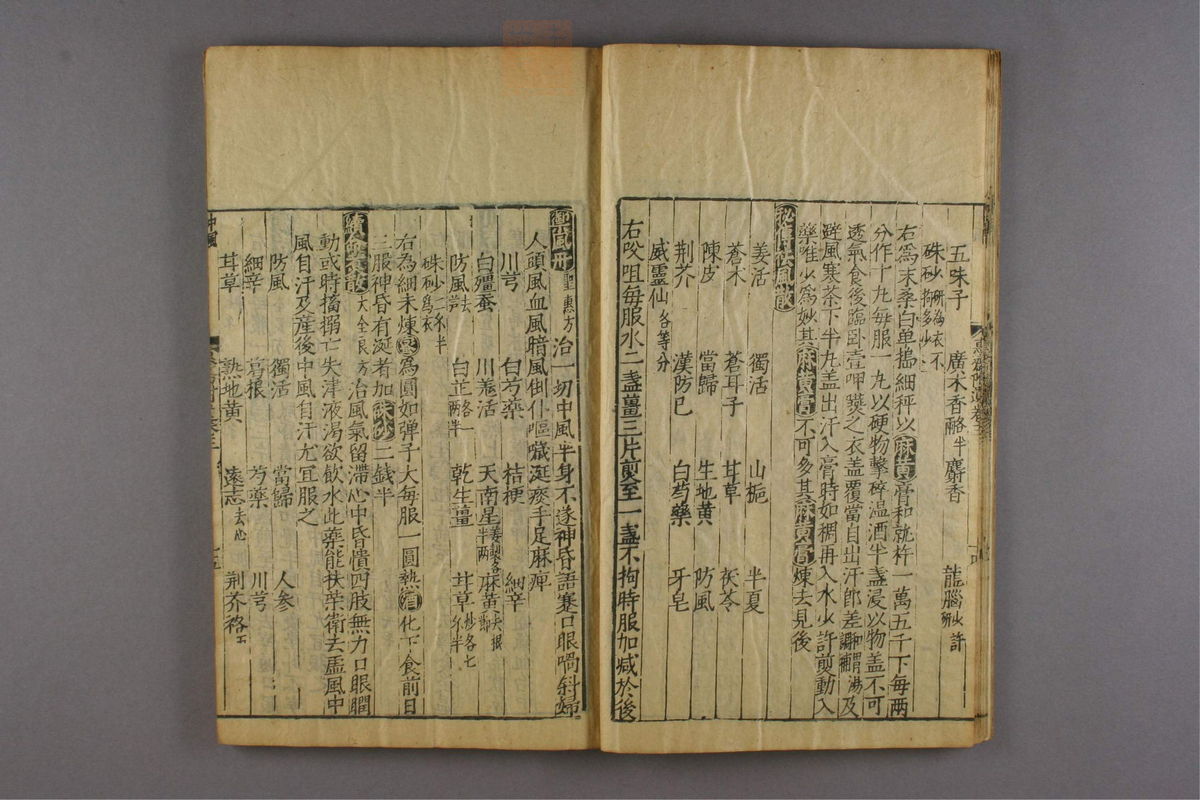 五味子 廣木香 麝香 龍腦研少許
硃砂研為衣不拘多少
右爲末桑白单搗細秤以麻黄膏和就杵一萬五千下每兩
分作十丸每服一丸以硬物擊碎温酒半盞浸以物盖不可
透氣食後臨卧壹呷嚥之衣盖覆當自出汗即差調補及
避風寒茶下半丸盖出汗入膏時如稠再入水少許煎動入
藥唯少爲妙其麻黄膏不可多其麻黄膏煉去見後
秘傳祛風散
羌活 獨活 山梔 半夏
蒼木 蒼耳子 甘草 茯苓
陳皮 當歸 生地黄 防風
荆芥 漢防已 白芍藥 牙皂
威靈仙各等分
右㕮咀每服水二盞薑三片煎至一盞不拘時服加减於後
禦風丹聖惠方治一切中風半身不遂神昏語蹇口眼喎斜婦
人頭風血風暗風倒仆嘔噦涎痰手足麻痺
川芎 白芍藥 桔梗 細辛
白殭蚕 川羗活 天南星姜製各半两 麻黄去根節
防風去芦 白芷各一两半 乾生薑 甘草炒各七分半
硃砂二分半爲衣
右為細末煉蜜爲圓如弹子大每服一圓熱酒化下食前日
三服神昏有涎者加硃砂二錢半
續命煮散大全良方治風氣留滯心中昏憒四肢無力口眼瞤
動或時搐搦亡失津液渴欲飲水此藥能扶荣衛去虚風中
風自汗及産後中風自汗尤宜服之
防風 獨活 當歸 人参
細辛 葛根 芍藥 川芎
甘草 熟地黄 遠志去心 荆芥
中風